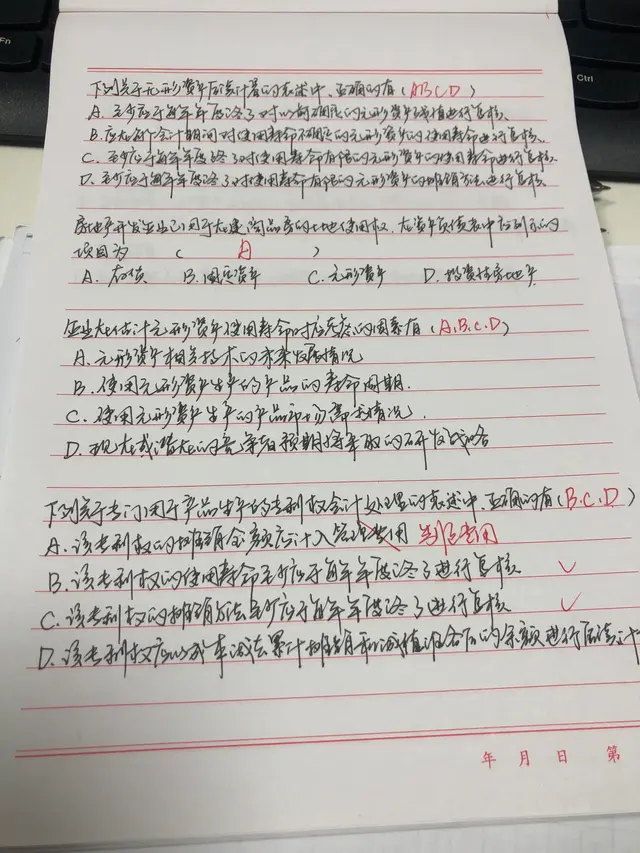 下列关于无形资产后续计量的表述中,正确的有(ABCD)
A. 至少应于每年年度终了对以前确定的无形资产残值进行复核.
B. 应在每个会计期间对使用寿命不确定的无形资产的使用寿命进行复核.
C. 至少应于每年年度终了对使用寿命有限的无形资产的使用寿命进行复核.
D. 至少应于每年年度终了对使用寿命有限的无形资产的摊销方法进行复核.
房地产开发企业已用于在建商品房的土地使用权,在资产负债表中应列示的
项目为 ( A )
A. 存货 B. 固定资产 C. 无形资产 D. 投资性房地产
企业在估计无形资产使用寿命时应考虑的因素有(A.B.C.D)
A. 无形资产相关技术的未来发展情况
B. 使用无形资产生产的产品的寿命周期.
C. 使用无形资产生产的产品市场需求情况.
D. 现在或潜在的竞争者预期将采取的研发战略
下列关于专门用于产品生产的专利权会计处理的表述中,正确的有(B.C.D)
A. 该专利权的摊销金额应计入管理费用 制造费用
B. 该专利权的使用寿命至少应于每年年度终了进行复核 ✓
C. 该专利权的摊销方法至少应于每年年度终了进行复核 ✓
D. 该专利权应以成本减去累计摊销和减值准备后的余额进行后续计
年 月 日 第
Fn
Ctrl